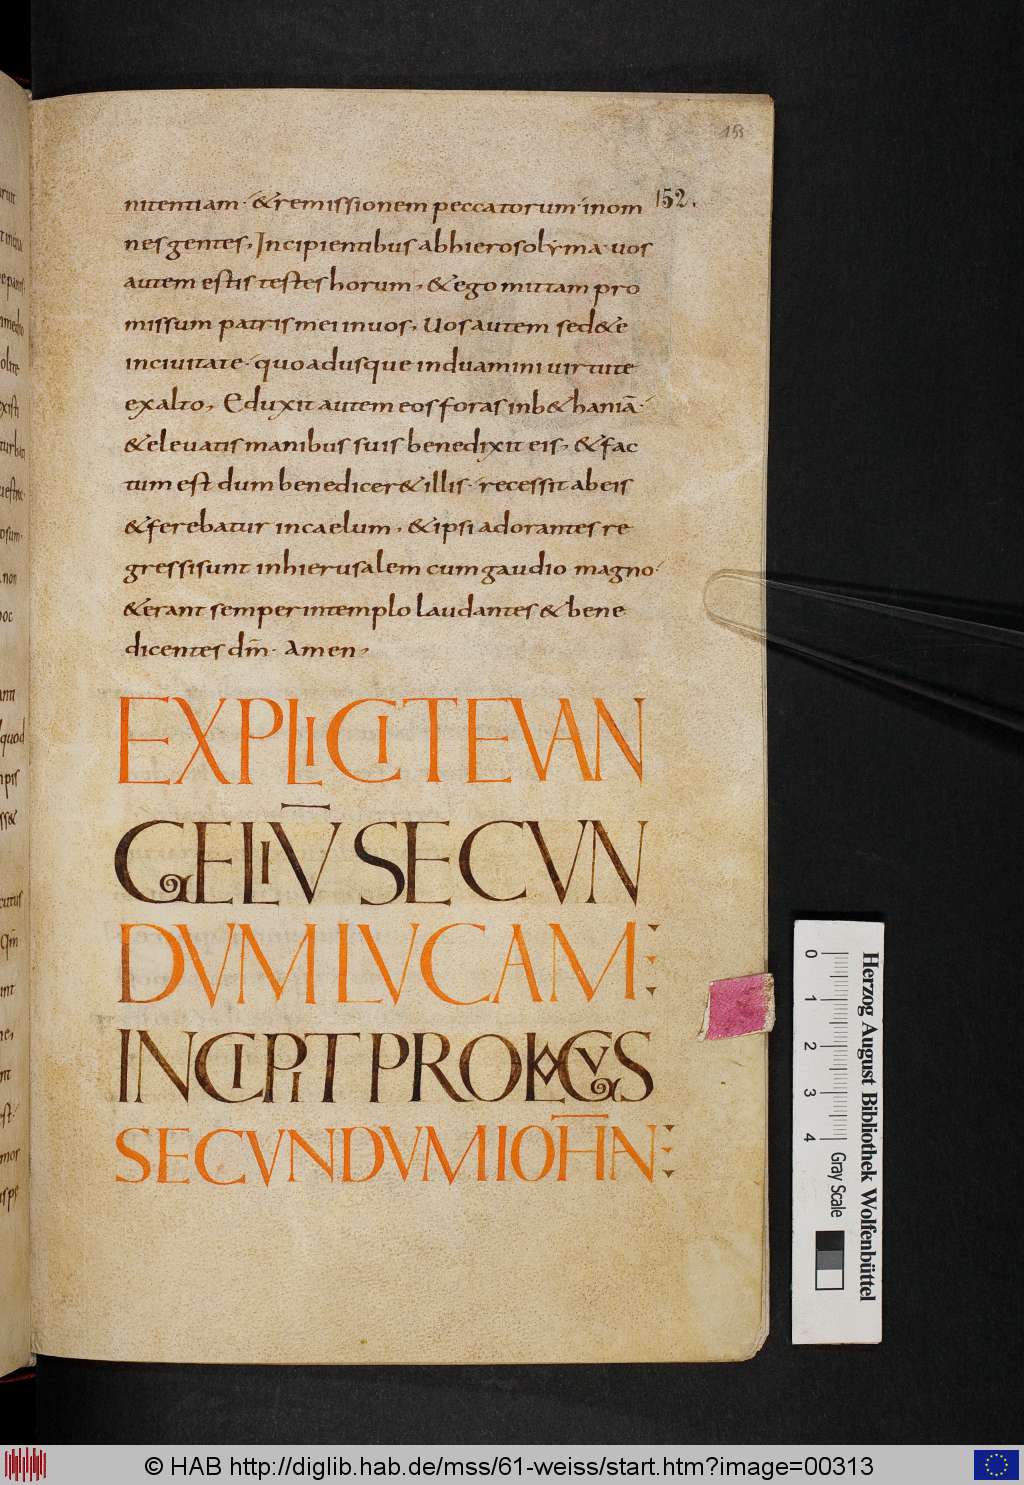 153
152.
nitentiam· & remissionem peccatorum· inom
nes gentes, Incipientibus abhierosolyma· uos
autem estis testes horum, & ego mittam pro
missum patris mei inuos, Uos autem sed&e
inciuitate· quoadusque induamini uirtute
exalto, Eduxit autem eos foras inb&haniā·
& eleuatis manibus suis benedixit eis, & fac
tum est dum benedicer& illis· recessit abeis
& ferebatur incaelum, & ipsi adorantes re
gressi sunt inhierusalem cum gaudio magno·
& erant semper intemplo laudantes & bene
dicentes dm̄· Amen,
EXPLICIT EVAN
GELIV̄ SECVN
DVM LVCAM
INCIPIT PROLOGVS
SECVNDVM IOH̄N
0 1 2 3 4
Gray Scale
Herzog August Bibliothek Wolfenbüttel
© HAB http://diglib.hab.de/mss/61-weiss/start.htm?image=00313